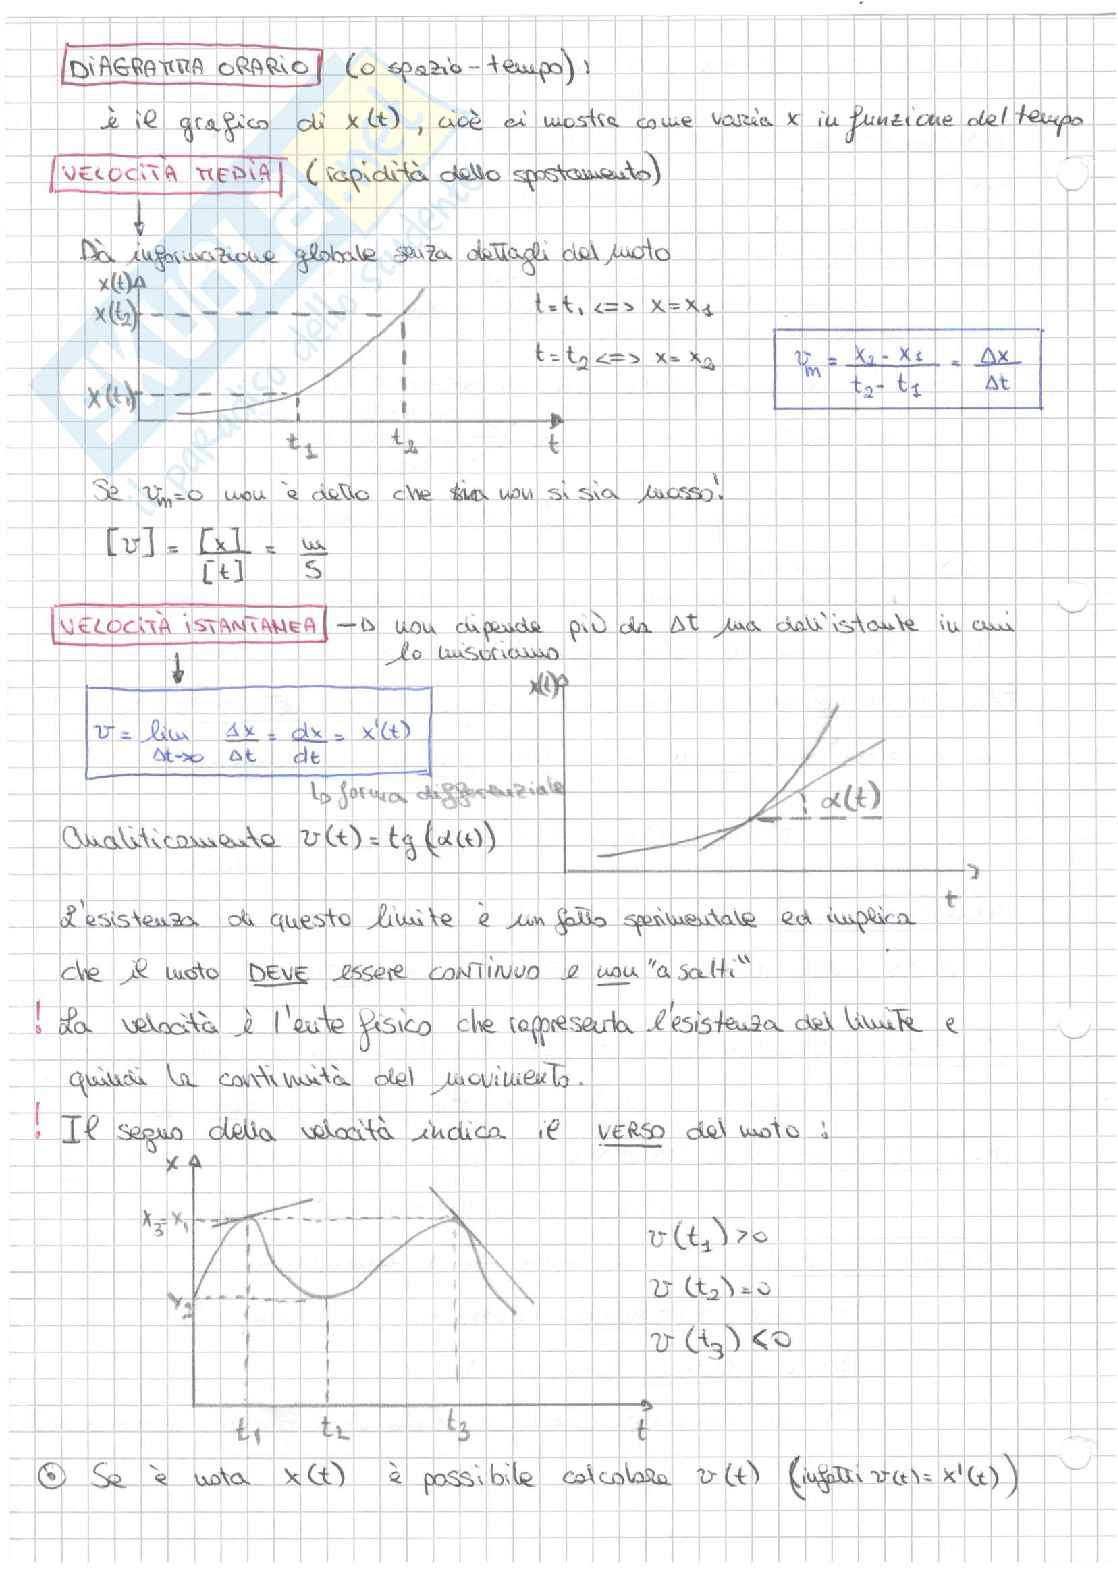 DIAGRAMMA ORARIO (o spazio-tempo):
è il grafico di x(t), cioè ci mostra come varia x in funzione del tempo
VELOCITÀ MEDIA (rapidità dello spostamento)
Dà informazione globale senza dettagli del moto
x(t)
x(t2)
x(t1)
t1
t2
t
t=t1 <=> x=x1
t=t2 <=> x=x2
vm = x2-x1 / t2-t1 = Δx / Δt
Se vm=0 non è detto che non si sia mosso!
[v] = [x] / [t] = m / s
VELOCITÀ ISTANTANEA → non dipende più da Δt ma dall'istante in cui
lo misuriamo
v = lim Δt→0 Δx / Δt = dx / dt = x'(t)
↳ forma differenziale
x(t)
α(t)
t
Analiticamente v(t) = tg(α(t))
L'esistenza di questo limite è un fatto sperimentale ed implica
che il moto DEVE essere CONTINUO e non "a salti"
! La velocità è l'ente fisico che rappresenta l'esistenza del limite e
quindi la continuità del movimento.
! Il segno della velocità indica il VERSO del moto:
x
x3=x1
t1
t2
t3
t
v(t1)>0
v(t2)=0
v(t3)<0
Se è nota x(t) è possibile calcolare v(t) (infatti v(t)=x'(t))
SKUOLA.net
il paradiso dello studente